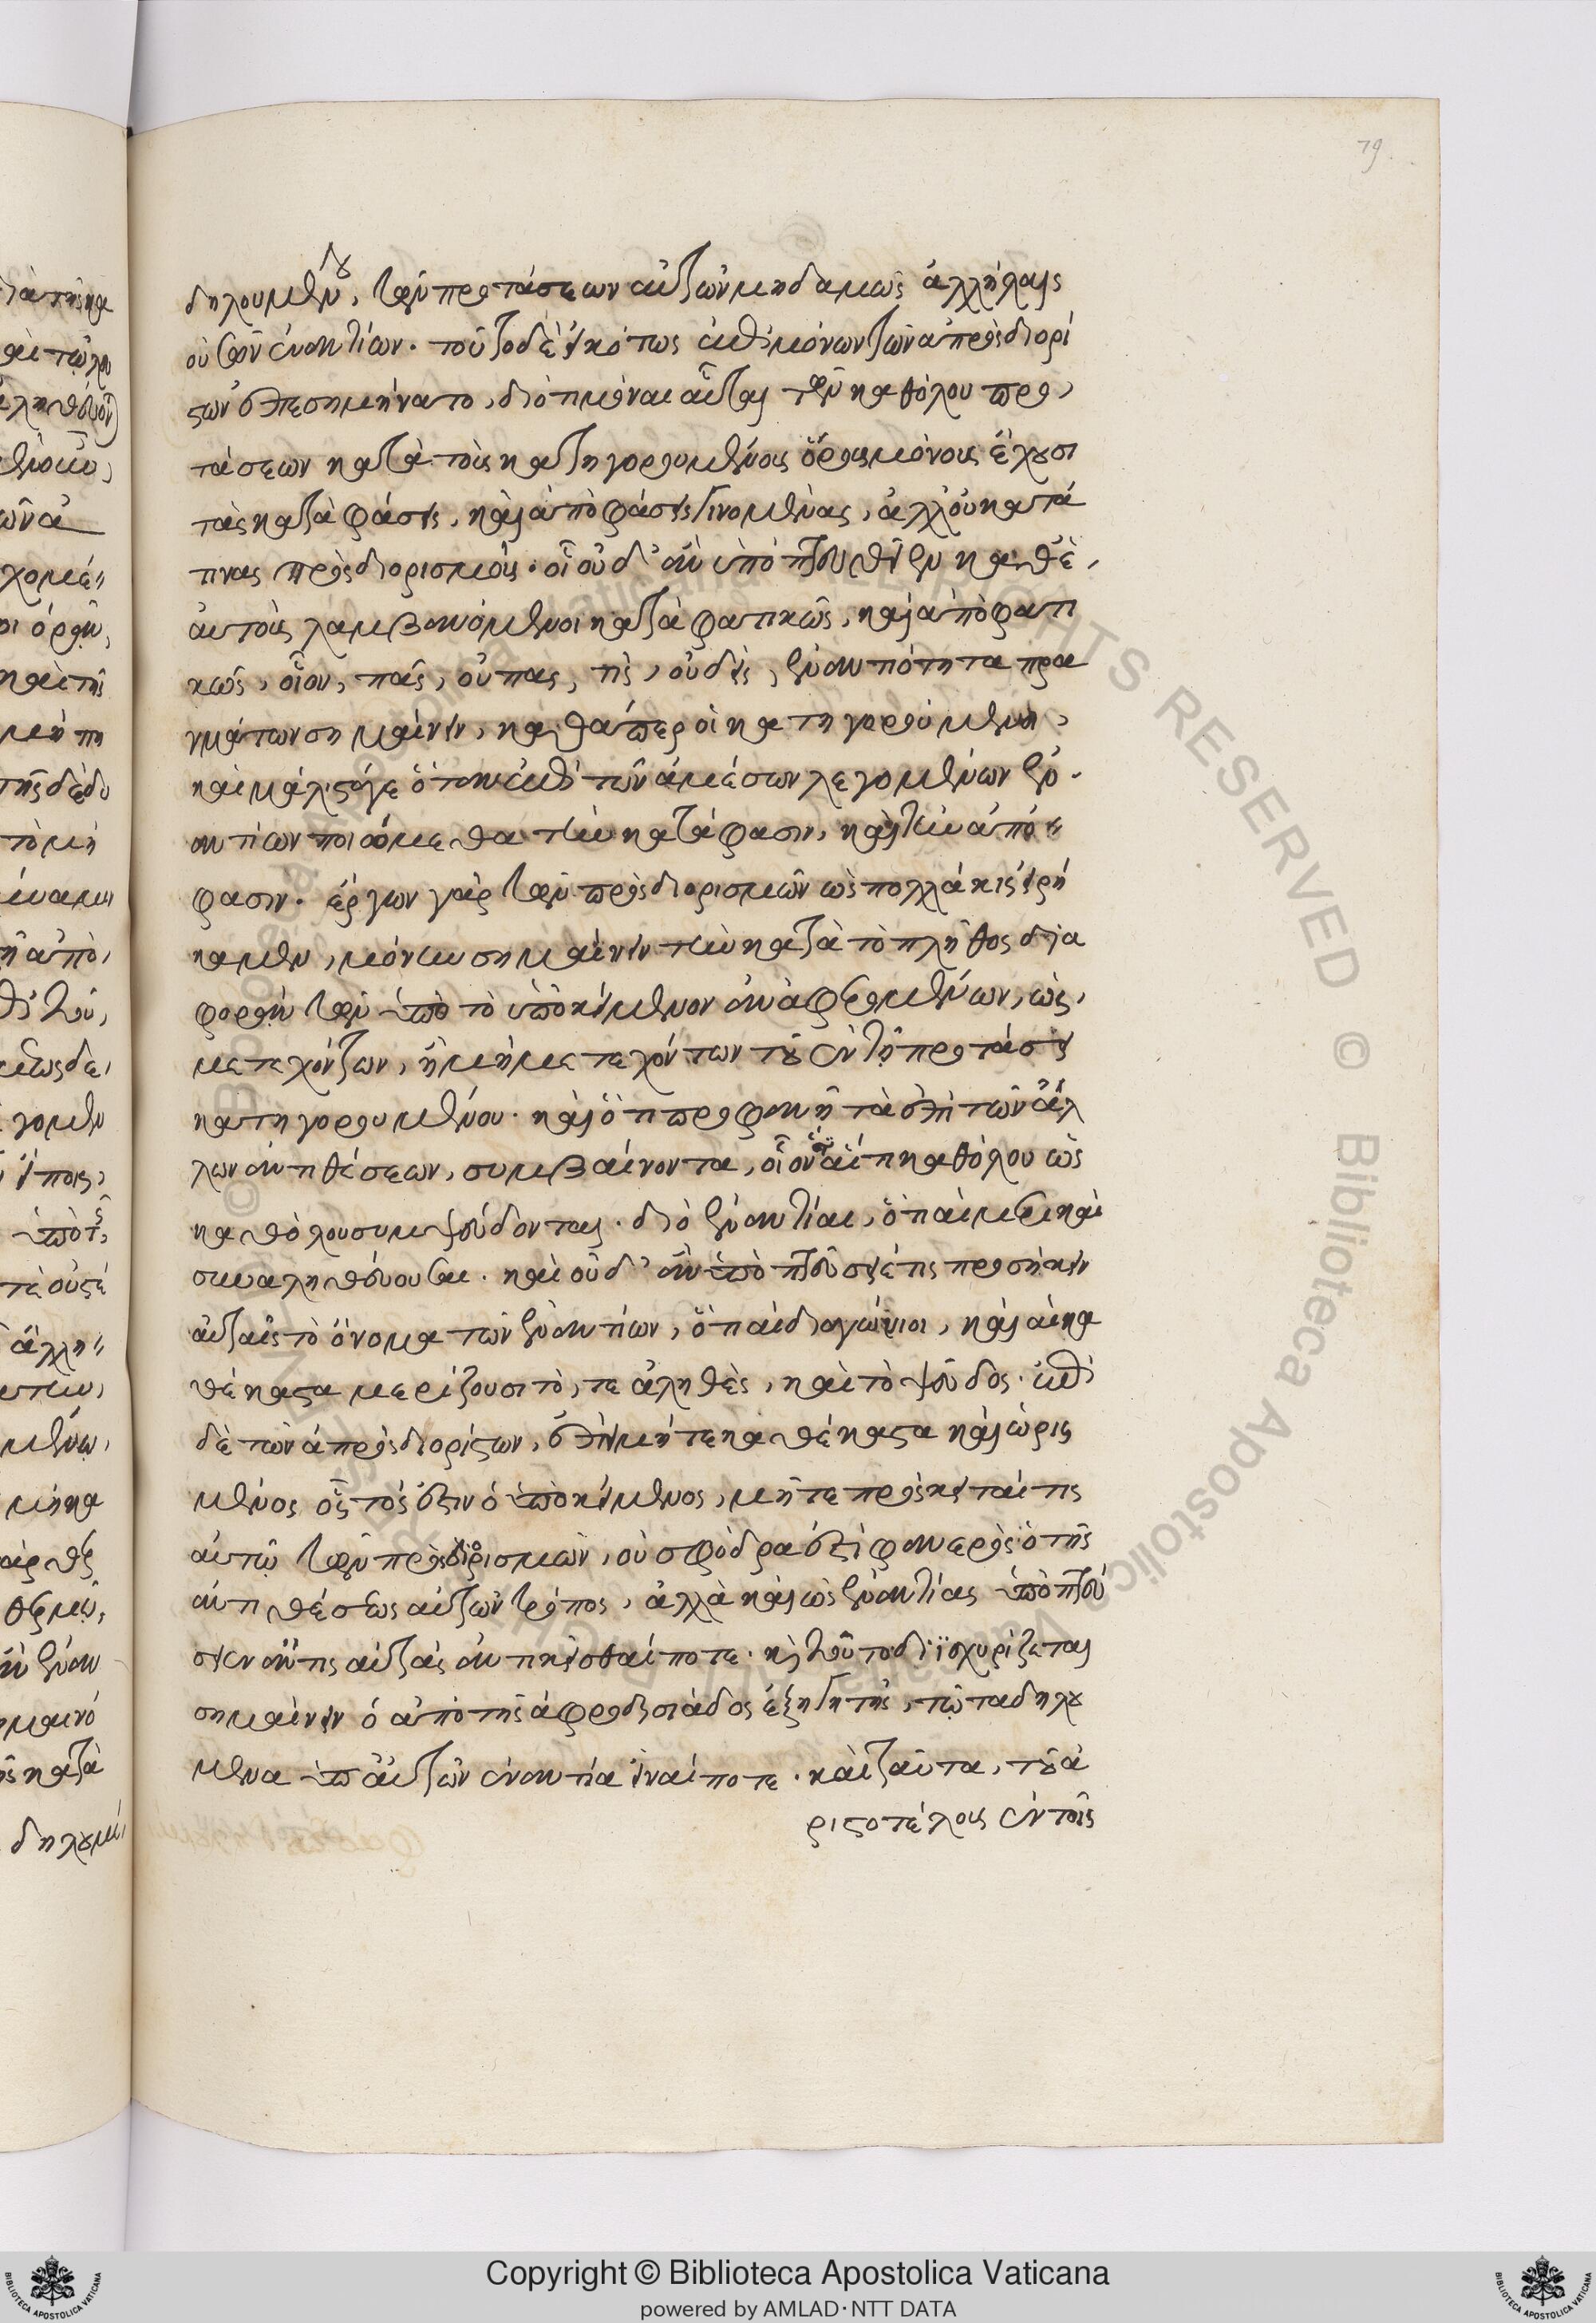 79
δηλουμένου, τῶν προτάσεων αὐτῶν μηδαμῶς ἀλλήλαις
οὐσῶν ἐναντίων. τοῦτο δὲ εἰκότως ἐπὶ μόνων τῶν ἀπροςδιορί
στων ἐπεσημήνατο, διότι μόναι αὗται τῶν καθόλου προ,
τάσεων κατὰ τοὺς κατηγορουμένους ὅρους μόνους ἔχουσι
τὰς καταφάσεις, καὶ ἀποφάσεις γινομένας, ἀλλ' οὐ κατά
τινας προςδιορισμούς. οἳ οὐδ' ἂν ὑποπτευθεῖεν καθ' ἑ,
αυτοὺς λαμβανόμενοι καταφατικῶς, καὶ ἀποφατι
κῶς, οἷον, πᾶς, οὐ πας, τὶς, οὐδεὶς, ἐναντιότητα πρα
γμάτων σημαίνειν, καθάπερ οἱ κατηγορούμενοι,
καὶ μάλιστά γε ὅταν ἐπὶ τῶν ἀμέσων λεγομένων ἐν
αντίων ποιώμεθα τὴν κατάφασιν, καὶ τὴν ἀπό
φασιν. ἔργων γὰρ τῶν προςδιορισμῶν ὡς πολλάκις εἰρή
καμεν, μόνην σημαίνειν τὴν κατὰ τὸ πλῆθος δια
φορὰν τῶν ὑπὸ τὸ ὑποκείμενον ἀναφερομένων, ὡς,
μετεχόντων, ἢ μὴ μετεχόντων τοῦ ἐν τῇ προτάσει
κατηγορουμένου. καὶ ὅτι προφανῆ τὰ ἐπὶ τῶν ἄλ
λων ἀντιθέσεων, συμβαίνοντα, οἷον αἵ τι καθόλου ὡς
καθόλου συμψεύδονται. διὸ ἐναντίαι, ὅτι αἱ μερικαὶ
συναληθεύουσαι. καὶ οὐδ' ἂν ὑποπτεύσειέ τις προσήκειν
αὐταῖς τὸ ὄνομα τῶν ἐναντίων, ὅτι αἱ διαγώνιοι, καὶ αἱ κα
θέκαστα μερίζουσι τὸ, τε ἀληθὲς, καὶ τὸ ψεῦδος. ἐπὶ
δὲ τῶν ἀπροςδιορίστων, ἐπεὶ μήτε καθέκαστα καὶ ὡρις
μένος οὗτός ἐστιν ὁ ὑποκείμενος, μήτε πρόςκειταί τις
αὐτῷ τῶν προςδιορισμῶν, οὐ σφόδρα ἐστὶ φανερὸς ὁ τῆς
ἀντιθέσεως αὐτῶν τρόπος, ἀλλὰ καὶ ὡς ἐναντίας ὑποπτεύ
σειεν ἄν τις αὐτὰς ἀντικεῖσθαί ποτε. καὶ τοῦτο διϊσχυρίζεται
σημαίνειν ὁ ἀπὸ τῆς ἀφροδισιάδος ἐξηγητὴς, τῷ τὰ δηλού
μενα ὑπ' αὐτῶν ἐναντία εἶναί ποτε. καὶ ταῦτα, τοῦ ἀ
ριστοτέλους ἐν τοῖς